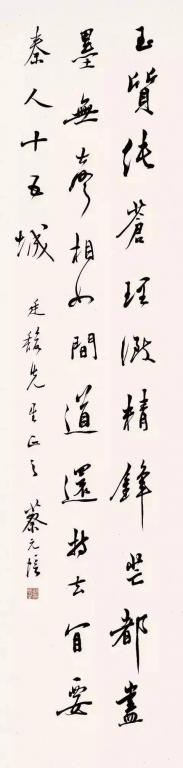 玉質純蒼理緻精鋒芒都盡
墨無聲相如間道還持去肎要
秦人十五城
先生正之 蔡元培